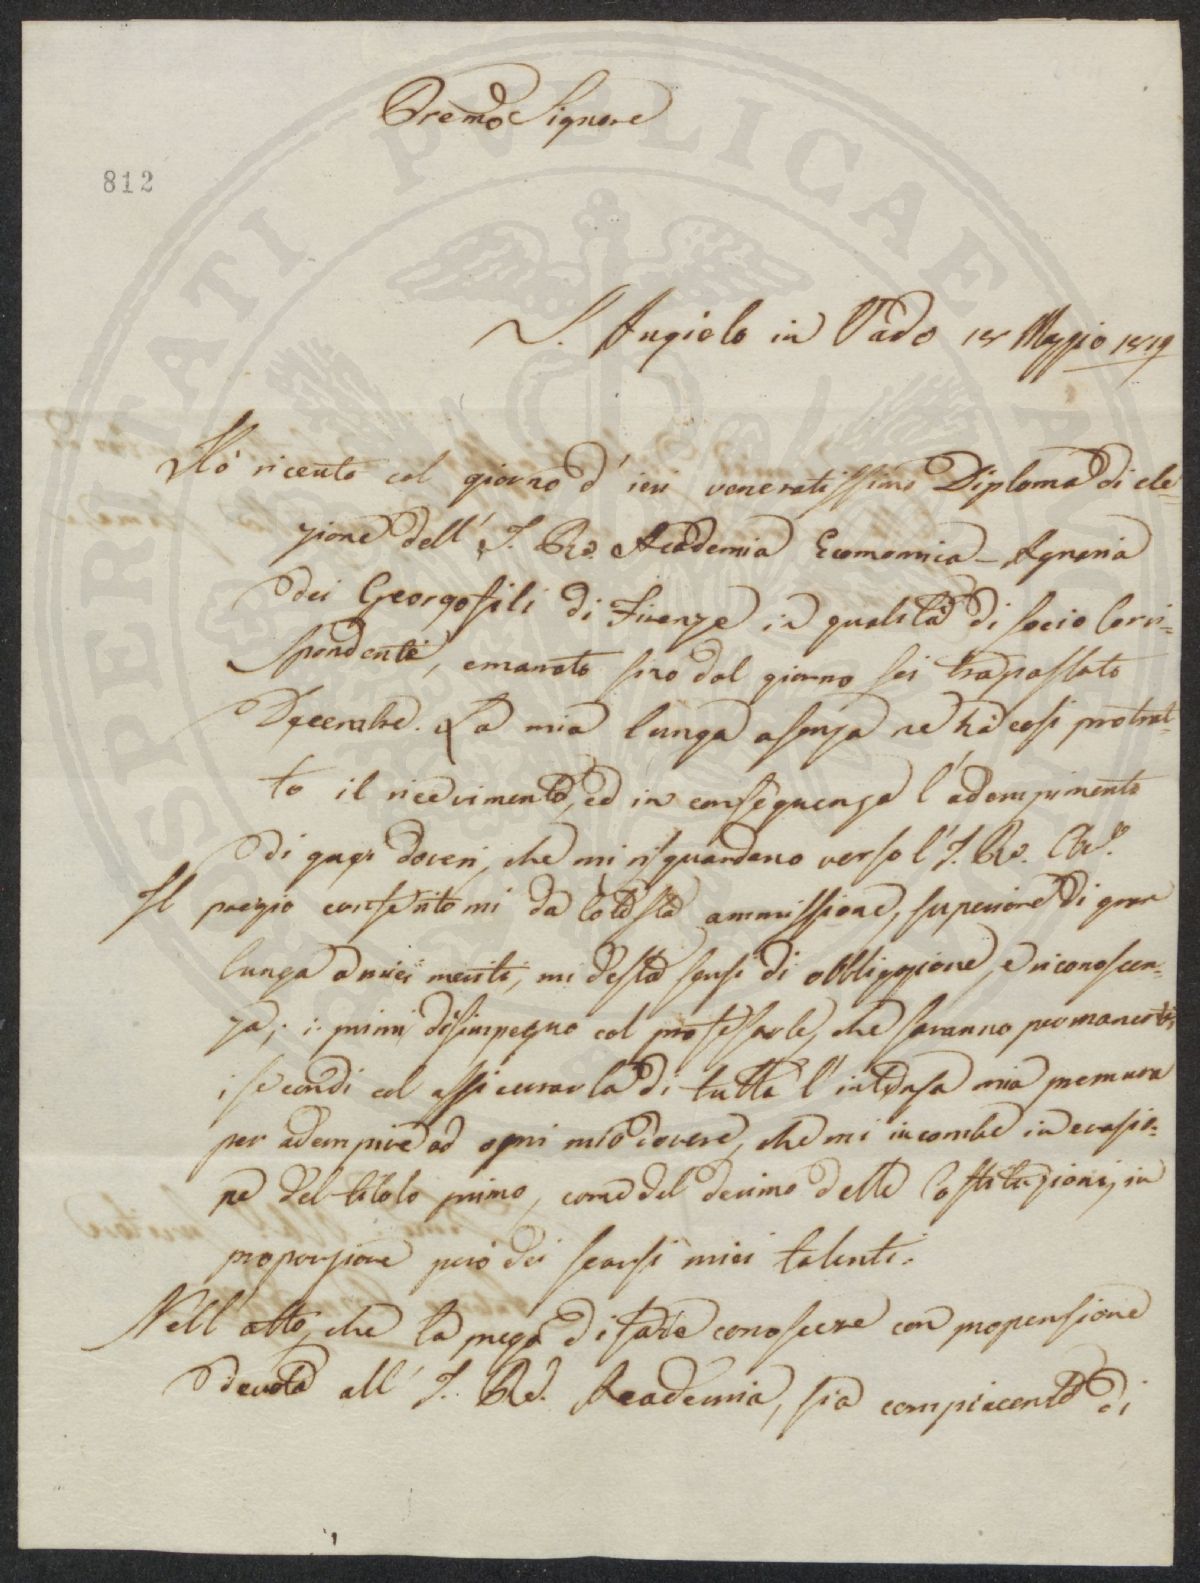 Premo Signore
812
S. Angiolo in Vado 18 Maggio 1819
Hò ricevuto col giorno d' ieri veneratissimo Diploma di ele-
zione dell' I. Re. Accademia Economica-Agraria
dei Georgofili di Firenze in qualità di socio Corri=
spondente, emanato sino dal giorno sei trapassato
Decembre. La mia lunga asenza ne hà così protrat-
to il ricevimento, ed in conseguenza l' adempimento
di quei doveri, che mi risguardano verso l' I. Re.
Il pregio consentitomi da cotesta ammissione, superiore di gran
lunga a miei meriti, mi desta sensi di obbligazione, e riconoscen-
za; i primi disimpegno col professarle, che saranno permanenti,
i secondi col assicurarla di tutta l' intensa mia premura
per adempire ad ogni mio dovere, che mi incombe in evasio=
ne del titolo primo, come del decimo delle Costituzioni, in
proporzione però dei scarsi miei talenti.
Nell' atto, che la prego di fare conoscere con propensione
devota all' I. Re. Accademia, sia compiacente di
SPERITATI PVBLICAE AVG